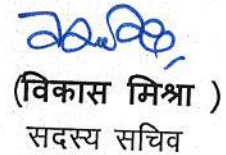 (विकास मिश्रा )
सदस्य सचिव